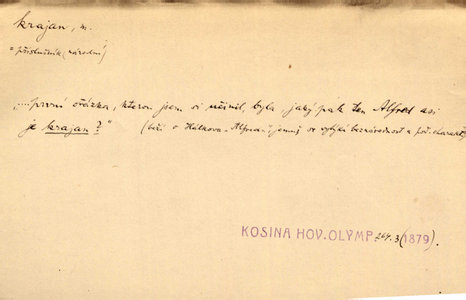 krajan, m.
= příslušník (národní)
„...první otázka, kterou jsem si učinil, byla, jakýpak ten Alfred asi
je krajan?“ (běží o Hálkova „Alfreda“, jemuž se vytýká beznárodnost a pod. charakt.
KOSINA HOV. OLYMP 264.3 (1879).